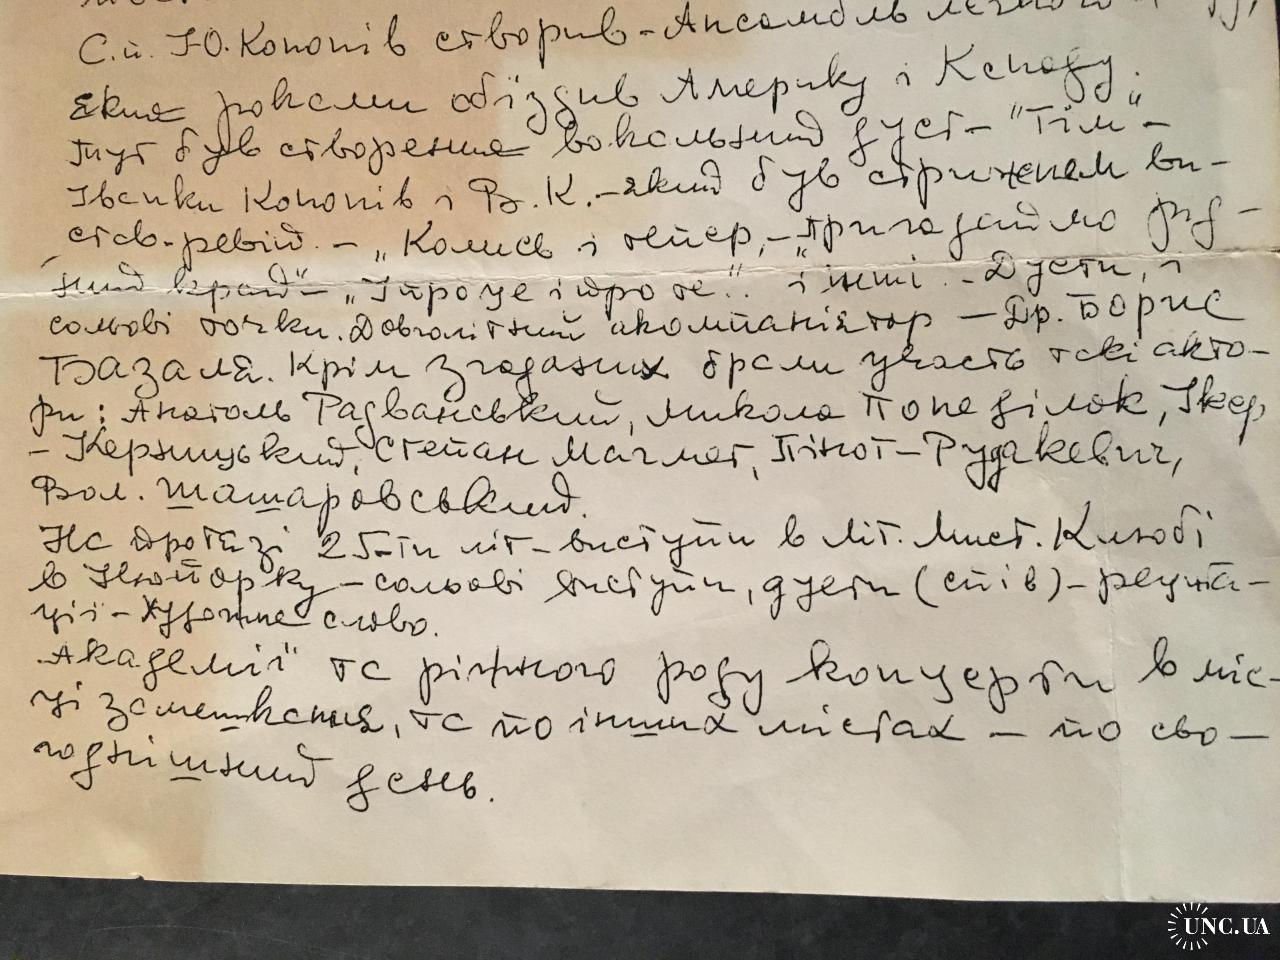 С.п. Ю. Кононів створив - Ансамбль легкого
яких роками об'їздив Америку і Канаду.
Тут був створений вокальний дует - "Тім" -
Іванки Кононів і В. К. - який був стрижнем ви-
став-ревій. - „Колись і тепер, - „Пригадаймо рід-
ний край" - „І про це і про те". і інші. - Дуети, і
сольові точки. Довголітний акомпаніятор - Др. Борис
Базала. Крім згаданих брали участь такі акто-
ри: Анатоль Радванський, Микола Понеділок, Ікер
- Керницький, Степан Магмет, Пінот-Рудакевич,
Вол. Шашаровський.
На протязі 25-ти літ - виступи в Літ. Мист. Клюбі
в Нюйорку - сольові виступи, дуети (спів) - рецита-
ції - художнє слово.
Академії та ріжного роду концерти в міс-
ці замешкання, та по інших містах - по сьо-
годнішний день.
UNC.UA